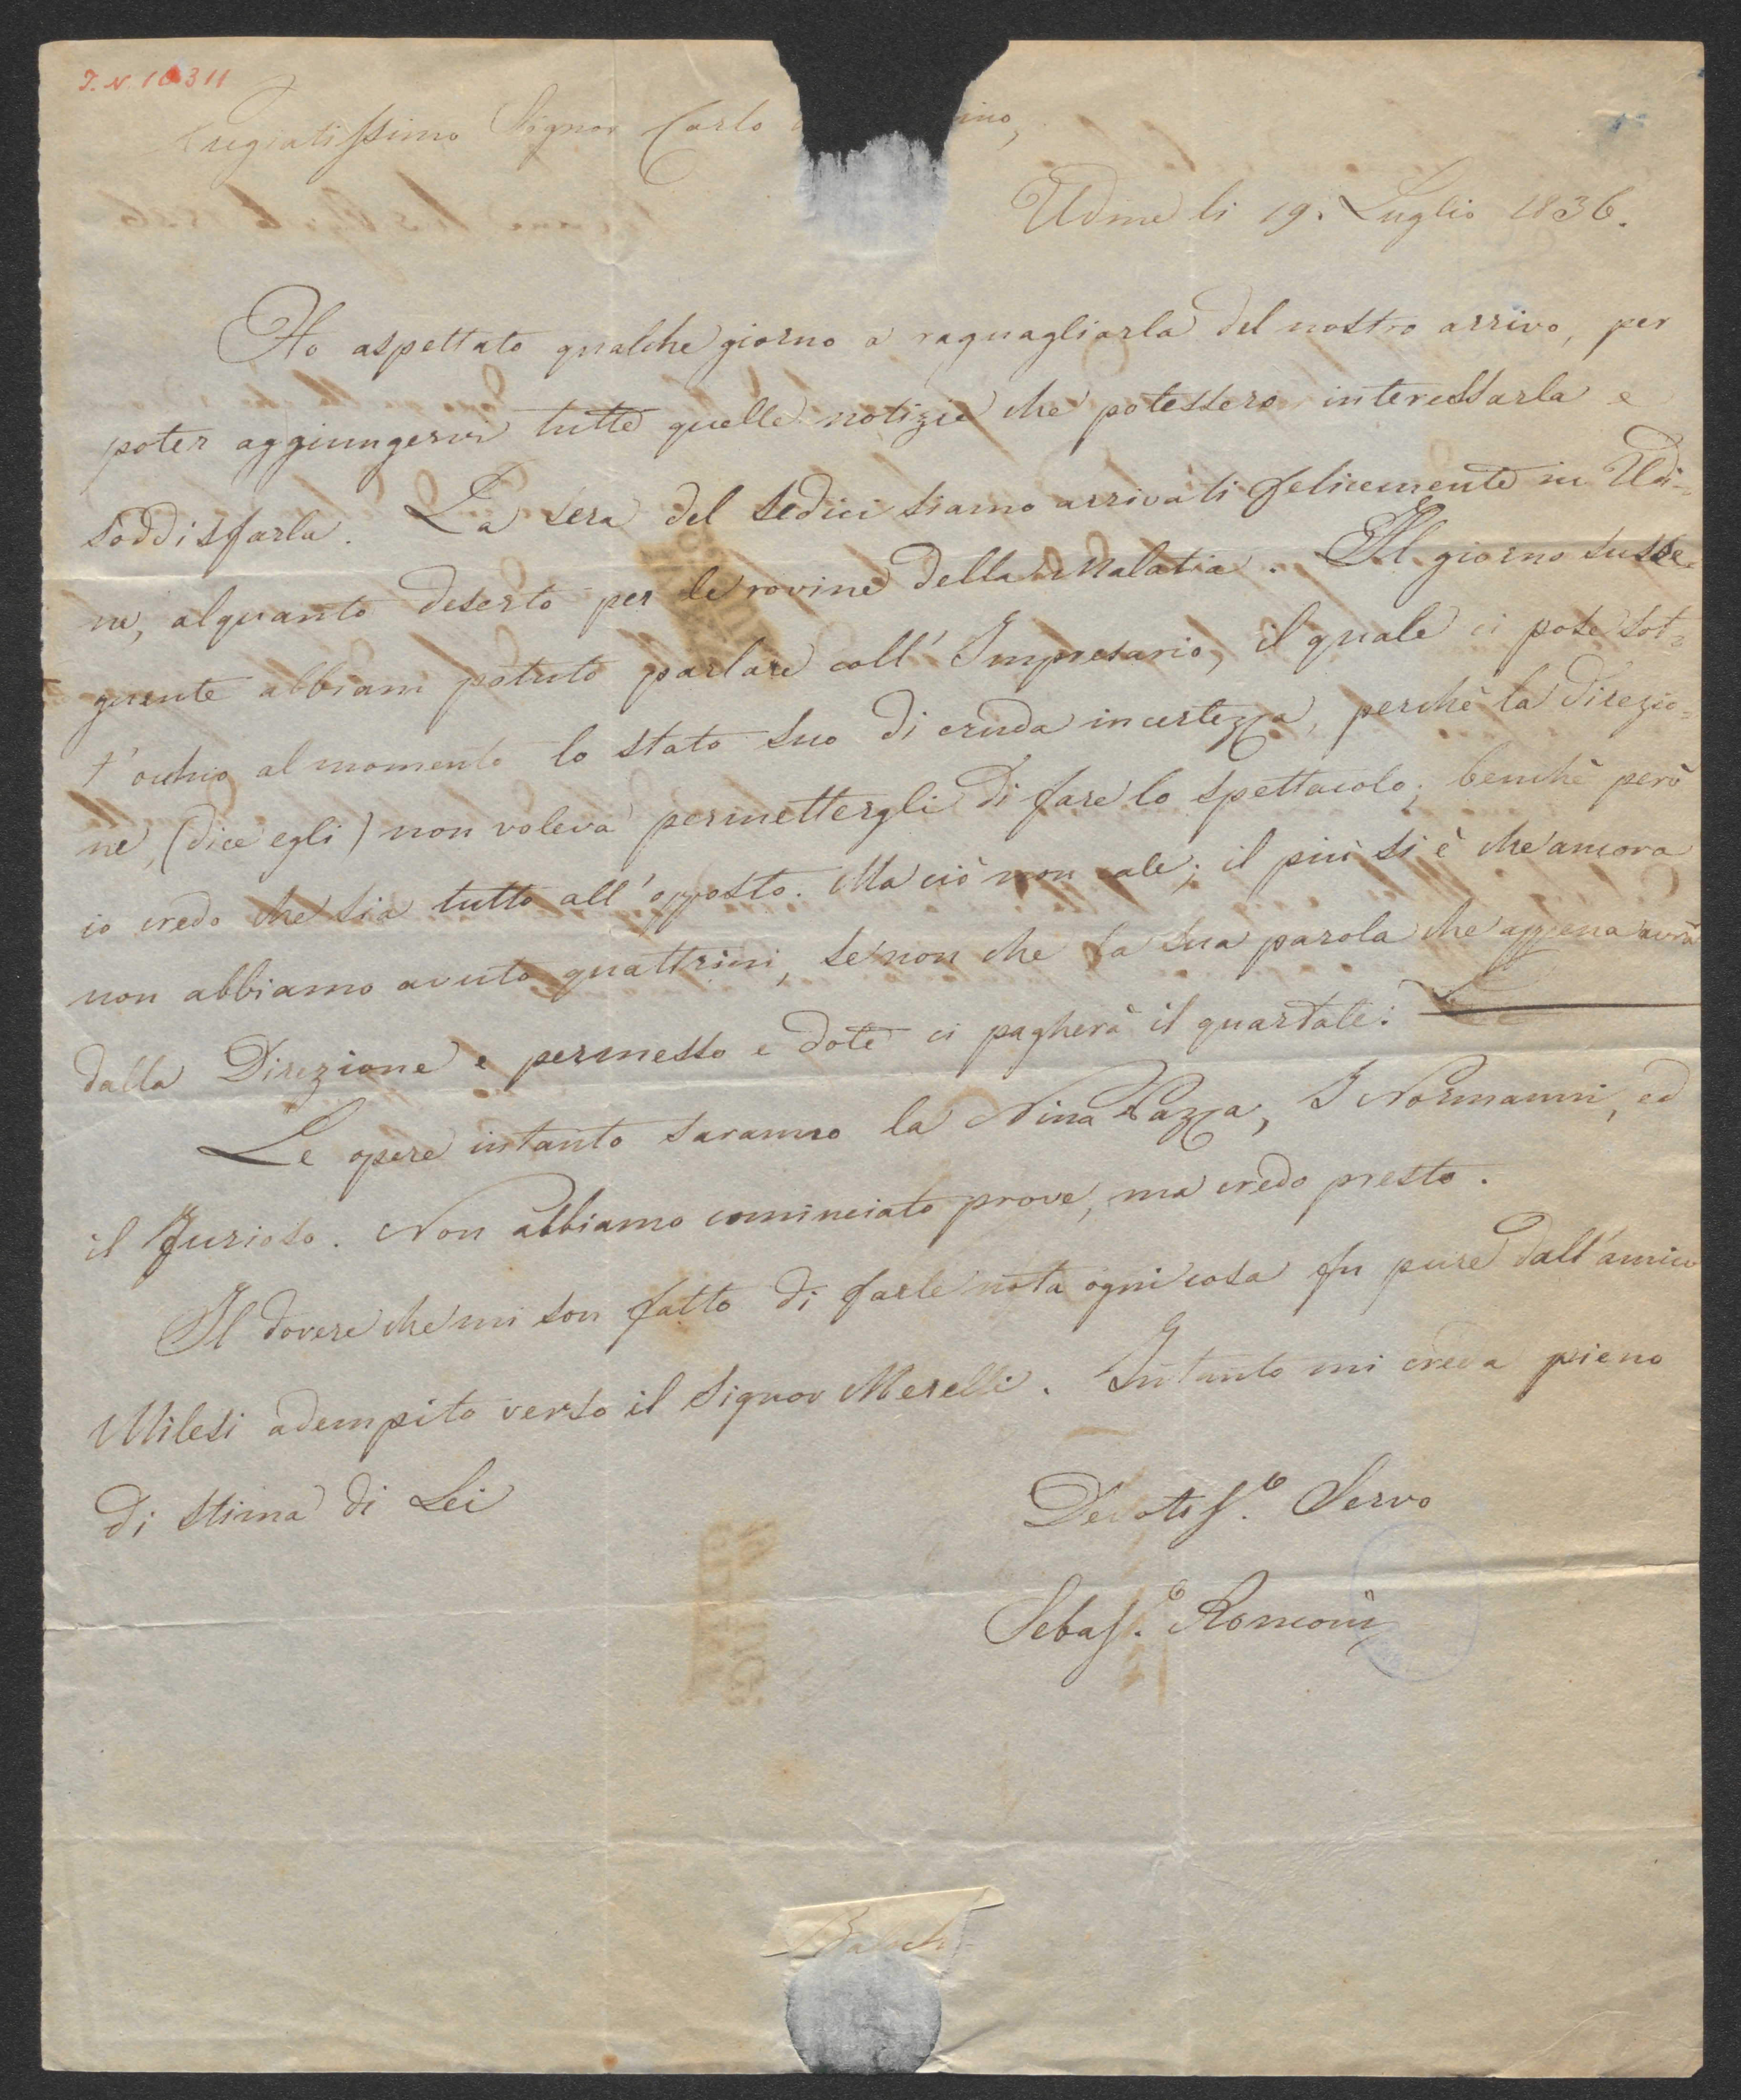 I.N. 16311
Pregiatissimo Signor Carlo ino,
Udine li 19. Luglio 1836.
Ho aspettato qualche giorno a raguagliarla del nostro arrivo, per
poter aggiungervi tutte quelle notizie che potessero interessarla e
soddisfarla. La sera del sedici siamo arrivati felicemente in Udi=
ne, alquanto deserto per le rovine della Malatia. Il giorno susse=
guente abbiam potuto parlare coll' Impresario, il quale ci pose sot=
t'occhio al momento lo stato suo di cruda incertezza, perchè la Direzio=
ne, (dice egli) non voleva permettergli di fare lo spettacolo; benchè però
io credo che sia tutto all'opposto. Ma ciò non cale; il più si è che ancora
non abbiamo avuto quattrini, se non che la sua parola che appena avrà
dalla Direzione e permesso e dote ci pagherà il quartale.
Le opere intanto saranno la Nina Pazza, I Normanni, ed
il Furioso. Non abbiamo cominciato prove, ma credo presto.
Il dovere che mi son fatto di farle nota ogni cosa fu pure dall'amico
Milesi adempito verso il Signor Merelli. Intanto mi creda pieno
di stima di Lei
Devotiss.o Servo
Sebass.o Ronconi
Baloch